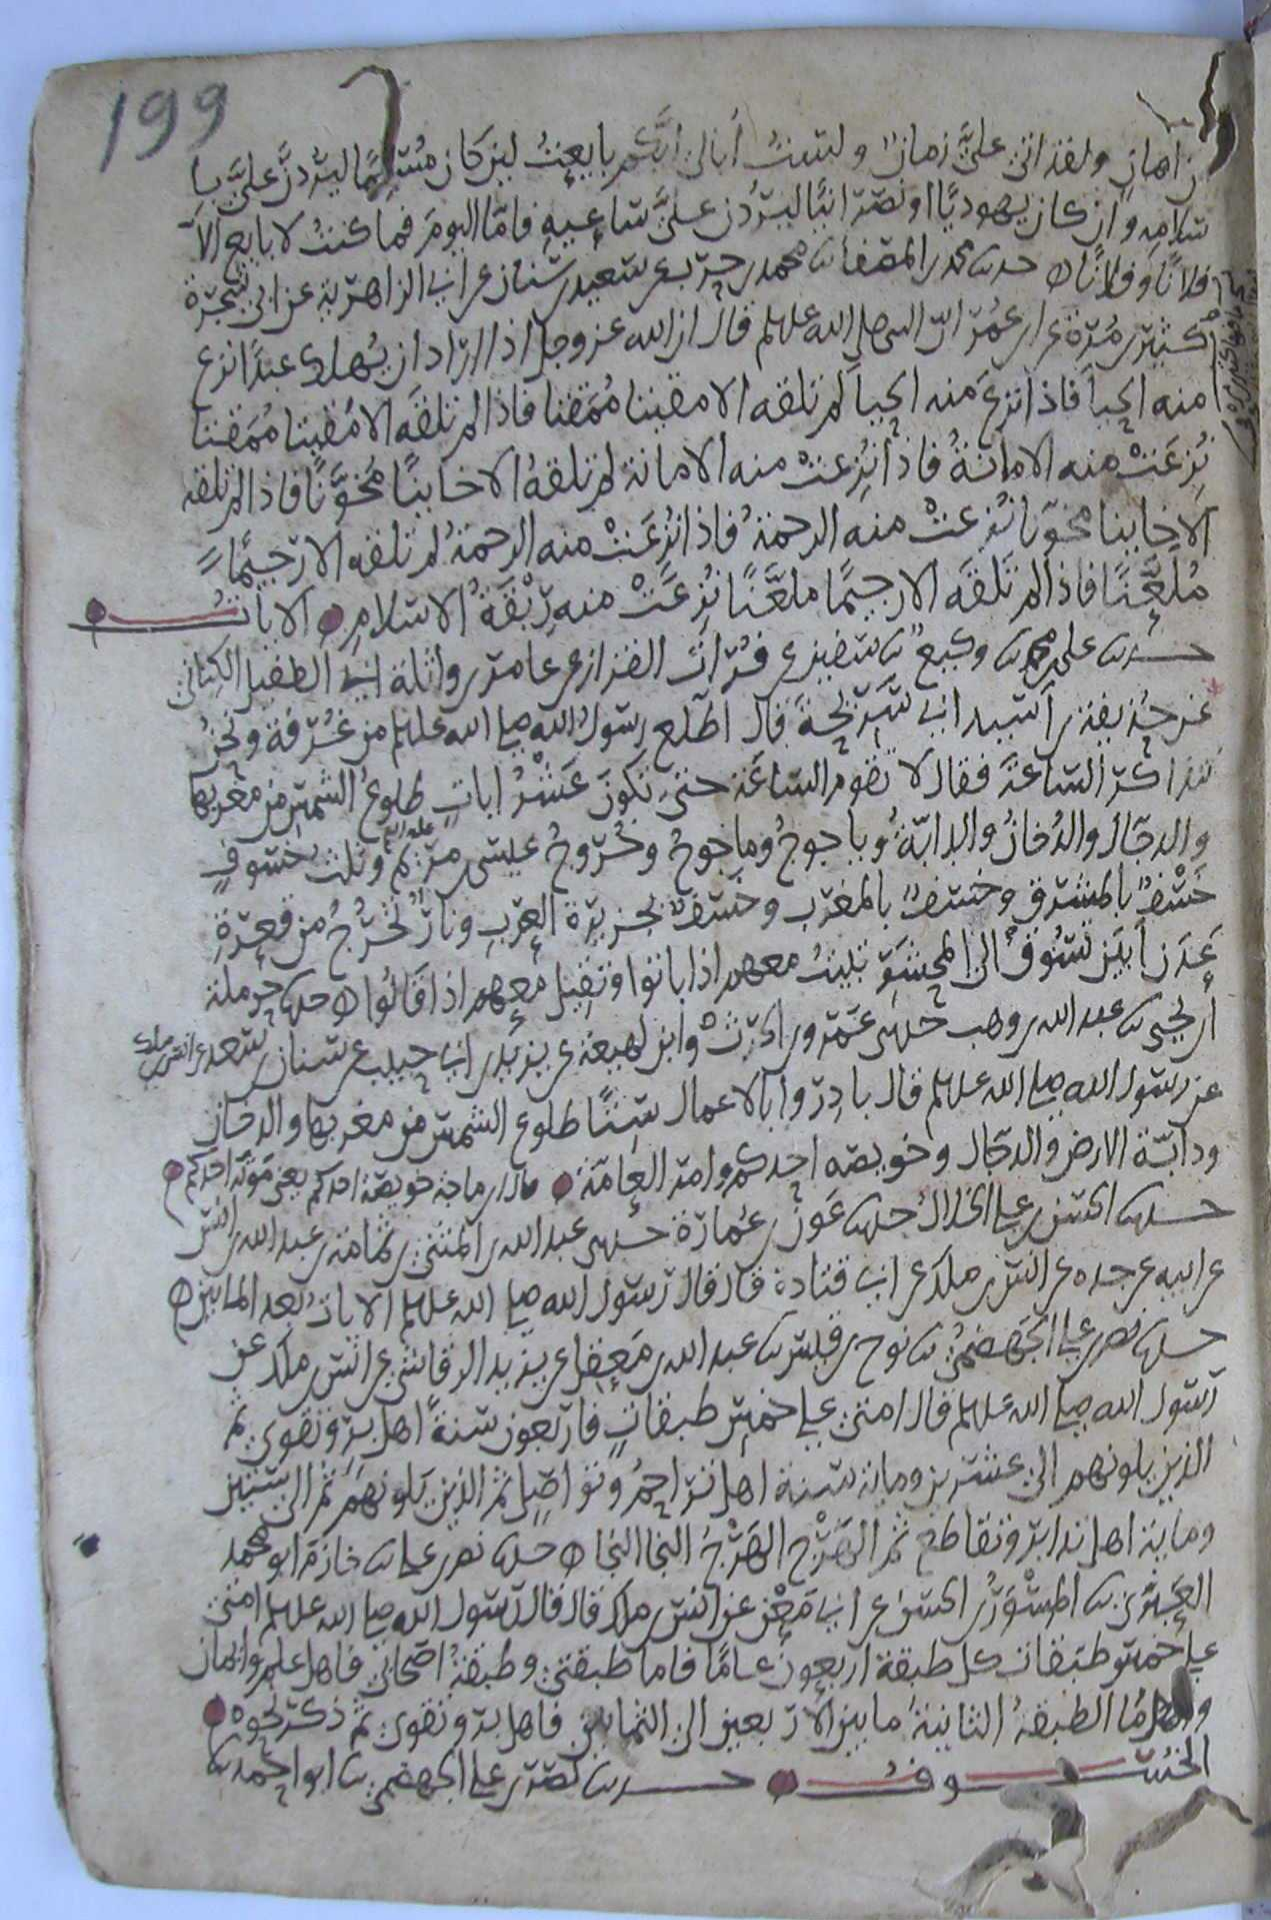 199
من ايمان ولقد اتى عليَّ زمان ولستُ أبالي ايَّكم بايعتُ لئن كان مُسلمًا ليردنَّ عليَّ با
سلامه وان كان يهوديًا او نصرانيًا ليردن عليَّ ساعيه فامّا اليومَ فما كنتُ لابايع الّا
فلانًا وفلانًا حدثنا محمد بن المصفا ثنا محمد بن حرب عن سعيد بن سنان عن ابي الزاهرية عن ابي شجرة
كثير بن مرة عن ابن عمر انّ النبي صلى الله عليه وسلم قال ان الله عز وجل اذا اراد ان يُهلك عبدًا نزع
منه الحياَ فاذا نزعَ منه الحياَ لم تلقه الا مقيتا مُمقتا فاذا لم تلقَه الا مُقيتا مُمقتا
نُزِعَتْ منه الامانةُ فاذا نُزِعتْ منه الامانة لم تلقهُ الا خاينًا مُخوَّنًا فاذا لم تلقه
الا خاينا مخوّنا نُزعتْ منه الرحمةُ فاذا نُزِعَتْ منه الرحمةُ لم تلقه الا رجيمًا
مُلعَّنًا فاذا لم تلقَه الا رجيمًا ملعَّنًا نُزعَتْ منه رِبْقَةُ الاسلامِ الايات
حدثنا علي بن محمد ثنا وكيع ثنا سفين عن فُرات القزاز عن عامر بن واثلة ابي الطفيل الكِناني
عن حُذيفة بن اَسيد ابي سَريحَةَ قال اطّلع رسولُ الله صلى الله عليه وسلم من غُرفة ونحنُ
نتذاكر الساعَةَ فقال لا تقوم الساعَة حتى تكونَ عَشْرُ اياتٍ طلوعُ الشمس من مغربها
والدجّال والدُخانُ والدابّةُ وياجوجُ وماجوجُ وخُروجُ عيسى بن مريم عليه السلم وثلث خسوفٍ
خَسْفٌ بالمشرق وخسفٌ بالمغرب وخسفٌ بجزيرة العَربِ ونارٌ تخرُجُ من قعرة
عَدَن اَبْيَن تسُوقُ الى المحشر تبيتُ معهم اذا باتوا وتقيل معهم اذا قَالُوا حدثنا حرملة
بن يحيى ثنا عبد الله بن وهب حدثني عَمرو بن الحرثْ وابن لهيعة عن يزيد بن ابي حبيب عن سنان بن سعد عن انس بن ملك
عن رسول الله صلى الله عليه وسلم قال بادِرُوا بالاعمال سِتًّا طلوع الشمس من مغربها والدخان
ودابّة الارض والدجّال وخويصه احدكم وامر العامّة قال ابن ماجة خويصة احدكم يعني مَوْته احدكم
حدثنا الحسن بن علي الخلالُ حدثنا عَون بن عُمارَة حدثني عبد الله بن المثنى بن ثمامة بن عبد الله بن انس
عن ابيه عن جده عن انس بن ملك عن ابي قتادة قال قال رسول الله صلى الله عليه وسلم الاياتُ بعد المايتين
حدثنا نصر بن علي الجهضميُّ ثنا نوح بن قيس ثنا عبد الله بن مَعقِل عن يزيد الرقاشي عن انس بن ملك عن
رسول الله صلى الله عليه وسلم قال امتي على خمسِ طبقاتٍ فاربعون سنةً اهل برٍ وتقوى ثم
الذين يلونهم الى عشرين وماية سنة اهل تراحمٍ وتواصِل ثم الذين يلونهَم ثم الى ستين
وماية اهل تدابر وتقاطع ثم الهَرْجُ الهَرْجُ النجا النجا حدثنا نصر بن علي ثنا خازم ابو محمد
العَنَزي ثنا المِسْوَرُ بن الحسن عن ابي مَعْنٍ عن انس بن ملك قال قال رسول الله صلى الله عليه وسلم امتي
على خمس طبَقات كل طبقة اربعونَ عامًا فاما طبقتي وطبقةُ اصحابي فاهل علم وايمان
واما الطبقةُ الثانيةُ ما بين الاربعين الى الثمانين فاهل بر وتقوى ثم ذكر نحوه
الخسُوفُ حدثنا نصر بن علي الجهضمي ثنا ابو احمد ثنا